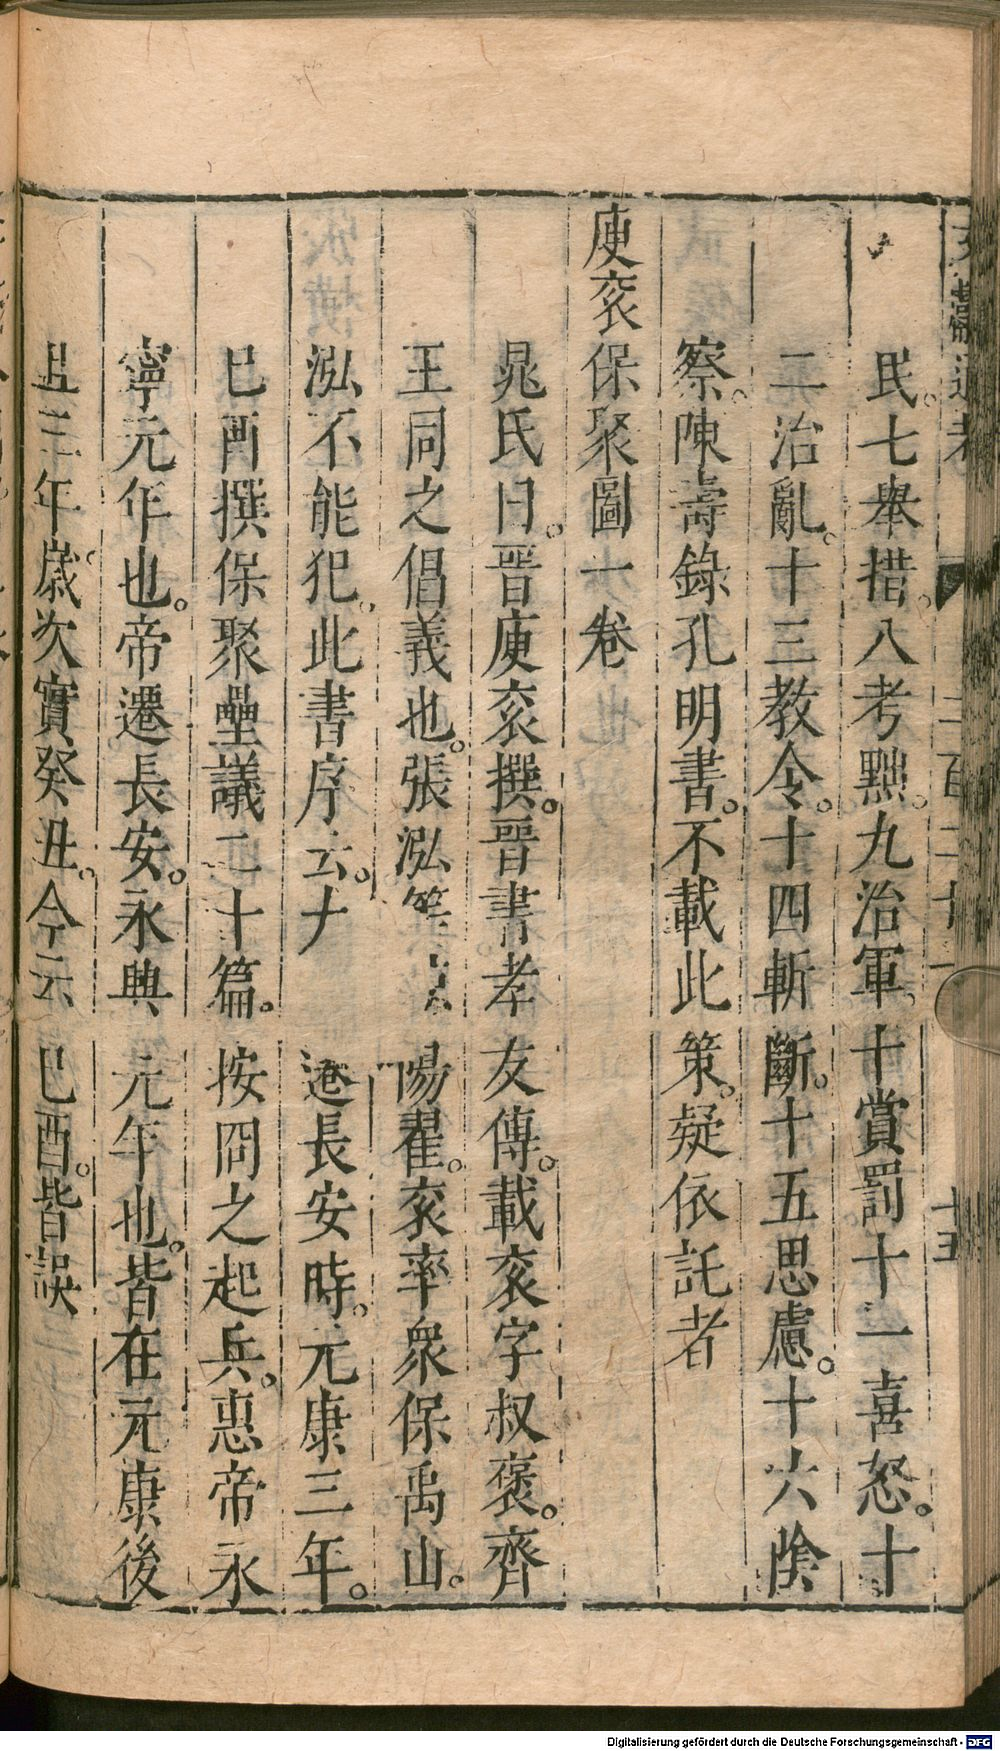 文獻通考 二百二十一 十五
民。七舉措。八考黜。九治軍。十賞罰十一喜怒。十
二治亂。十三教令。十四斬斷。十五思慮。十六陰
察。陳壽錄孔明書。不載此策。疑依託者
庾衮保聚圖一卷
晁氏曰。晉庾衮撰。晉書孝友傳。載衮字叔褒。齊
王冏之倡義也。張泓等 陽翟。衮率衆保禹山。
泓不能犯。此書序云。大 遷長安時。元康三年。
巳酉撰保聚壘議二十篇。按冏之起兵。惠帝永
寧元年也。帝遷長安。永興元年也。皆在元康後
且三年。歲次實癸丑。今云巳酉。皆誤
Digitalisierung gefördert durch die Deutsche Forschungsgemeinschaft - DFG